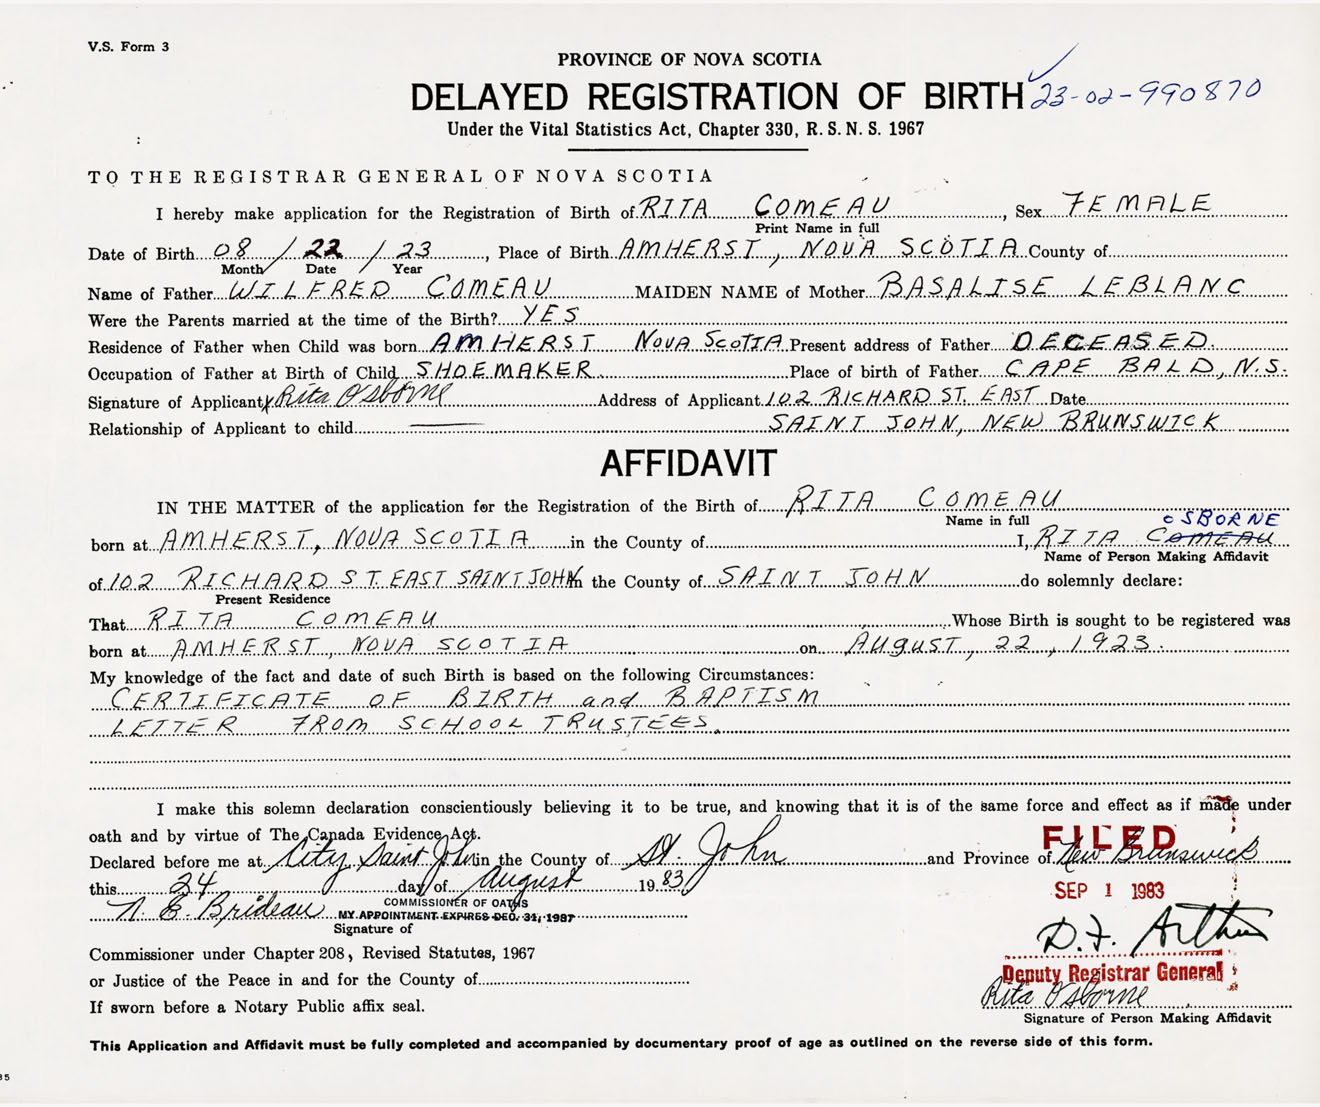 V.S. Form 3
PROVINCE OF NOVA SCOTIA
DELAYED REGISTRATION OF BIRTH 23-02-990870
Under the Vital Statistics Act, Chapter 330, R. S. N. S. 1967
TO THE REGISTRAR GENERAL OF NOVA SCOTIA
I hereby make application for the Registration of Birth of RITA COMEAU, Sex FEMALE
Print Name in full
Date of Birth 08 / 22 / 23, Place of Birth AMHERST, NOVA SCOTIA County of
Month Date Year
Name of Father WILFRED COMEAU MAIDEN NAME of Mother BASALISE LEBLANC
Were the Parents married at the time of the Birth? YES
Residence of Father when Child was born AMHERST NOVA SCOTIA Present address of Father DECEASED.
Occupation of Father at Birth of Child SHOEMAKER Place of birth of Father CAPE BALD, N.S.
Signature of Applicant X Rita Osborne Address of Applicant 102 RICHARD ST. EAST Date
Relationship of Applicant to child SAINT JOHN, NEW BRUNSWICK
AFFIDAVIT
IN THE MATTER of the application for the Registration of the Birth of RITA COMEAU
Name in full OSBORNE
born at AMHERST, NOVA SCOTIA in the County of I, RITA COMEAU
Name of Person Making Affidavit
of 102 RICHARD ST. EAST SAINT JOHN in the County of SAINT JOHN do solemnly declare:
Present Residence
That RITA COMEAU Whose Birth is sought to be registered was
born at AMHERST, NOVA SCOTIA on AUGUST, 22, 1923.
My knowledge of the fact and date of such Birth is based on the following Circumstances:
CERTIFICATE OF BIRTH and BAPTISM
LETTER FROM SCHOOL TRUSTEES.
I make this solemn declaration conscientiously believing it to be true, and knowing that it is of the same force and effect as if made under
oath and by virtue of The Canada Evidence Act.
FILED
Declared before me at City Saint John in the County of St. John and Province of New Brunswick
this 24 day of August 1983
SEP 1 1983
COMMISSIONER OF OATHS
N. E. Brideau MY APPOINTMENT EXPIRES DEC. 31, 1987
Signature of
D. F. Arthur
Commissioner under Chapter 208, Revised Statutes, 1967
Deputy Registrar General
or Justice of the Peace in and for the County of
Rita Osborne
If sworn before a Notary Public affix seal.
Signature of Person Making Affidavit
This Application and Affidavit must be fully completed and accompanied by documentary proof of age as outlined on the reverse side of this form.